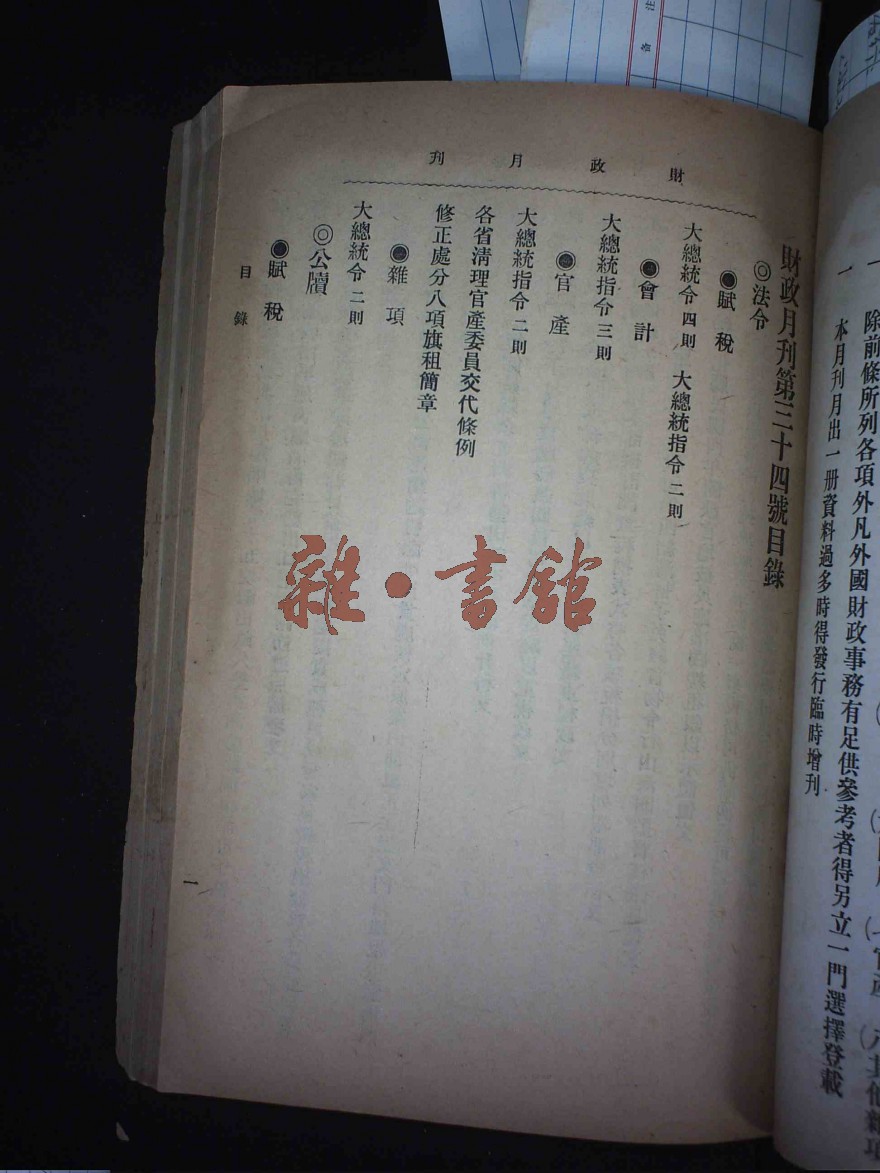 財政月刊
財政月刊第三十四號目錄
◎法令
◉賦稅
大總統令四則　大總統指令二則
◉會計
大總統指令三則
◉官產
大總統指令二則
各省清理官產委員交代條例
修正處分八項旗租簡章
◉雜項
大總統令二則
◎公牘
◉賦稅
目錄
一
除前條所列各項外凡外國財政事務有足供參考者得另立一門選擇登載
一　本月刊月出一册資料過多時得發行臨時增刊
雜•書館